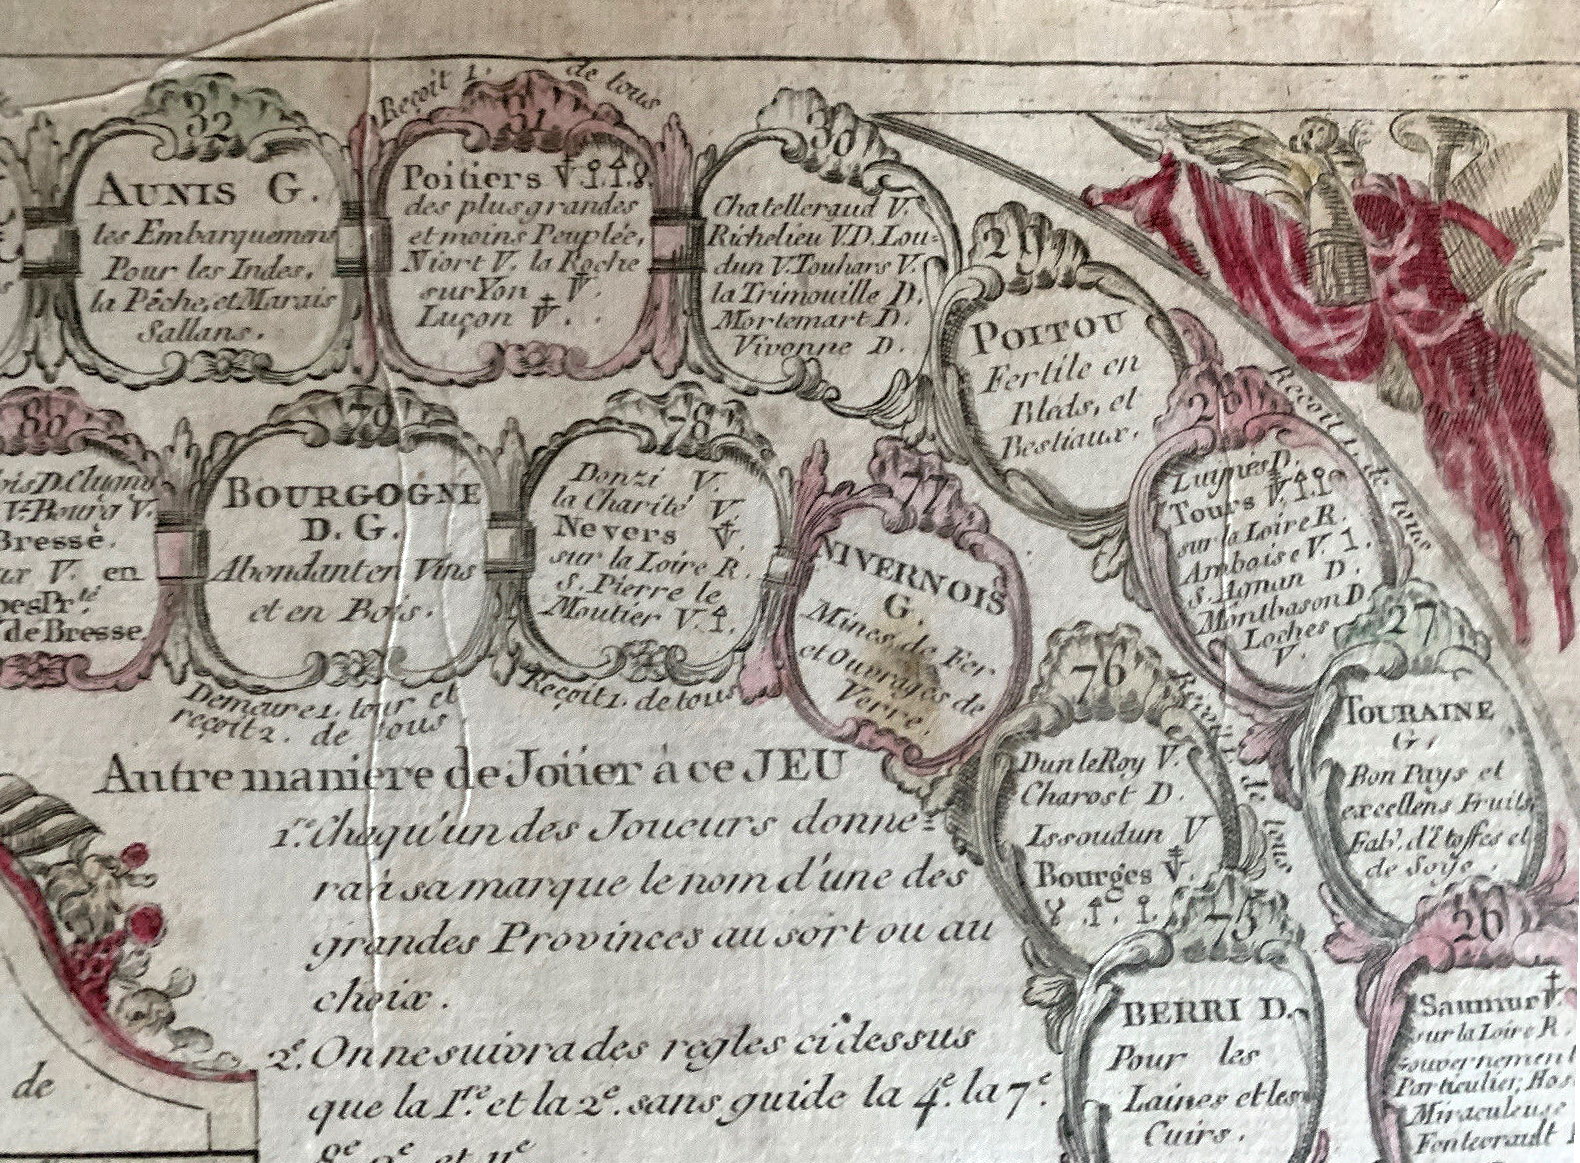 32
AUNIS G.
les Embarquemens
Pour les Indes,
la Pêche, et Marais
Sallans.
Reçoit 1. de tous
31
Poitiers
des plus grandes
et moins Peuplée,
Niort V. la Roche
sur Yon V.
Luçon
30
Chatelleraud V.
Richelieu V.D. Lou=
dun V. Touhars V.
la Trimouille D.
Mortemart D.
Vivonne D.
29
POITOU
Fertile en
Bleds, et
Bestiaux.
Reçoit 1. de tous
28
Luynes D.
Tours
sur la Loire R.
Amboise V.
S. Agnan D.
Montbason D.
Loches
V.
27
TOURAINE
G.
Bon Pays et
excellens Fruits,
Fab. d'Etoffes et
de Soye.
26
Saumur
sur la Loire R.
Gouvernement
Particulier,
Miraculeuse
Fontevrault
80
Clugny
V. Bourg V.
Bresse.
V. en
de Bresse.
79
BOURGOGNE
D. G.
Abondant en Vins
et en Bois.
Demeure 1. tour et
reçoit 2. de tous
78
Donzi V.
la Charité V.
Nevers
sur la Loire R.
S. Pierre le
Moutier V.
Reçoit 1. de tous
77
NIVERNOIS
G.
Mines de Fer
et Ouvrages de
Verre.
76
Reçoit 1. de tous
Dun le Roy V.
Charost D.
Issoudun V
Bourges
75
BERRI D.
Pour les
Laines et les
Cuirs.
Autre maniere de Joüer à ce JEU
1.re Chaqu'un des Joueurs donne=
ra à sa marque le nom d'une des
grandes Provinces au sort ou au
choix.
2.e On ne suivra des regles ci dessus
que la 1.re et la 2.e sans guide la 4.e la 7.e
8.e 9.e et 11.e
de